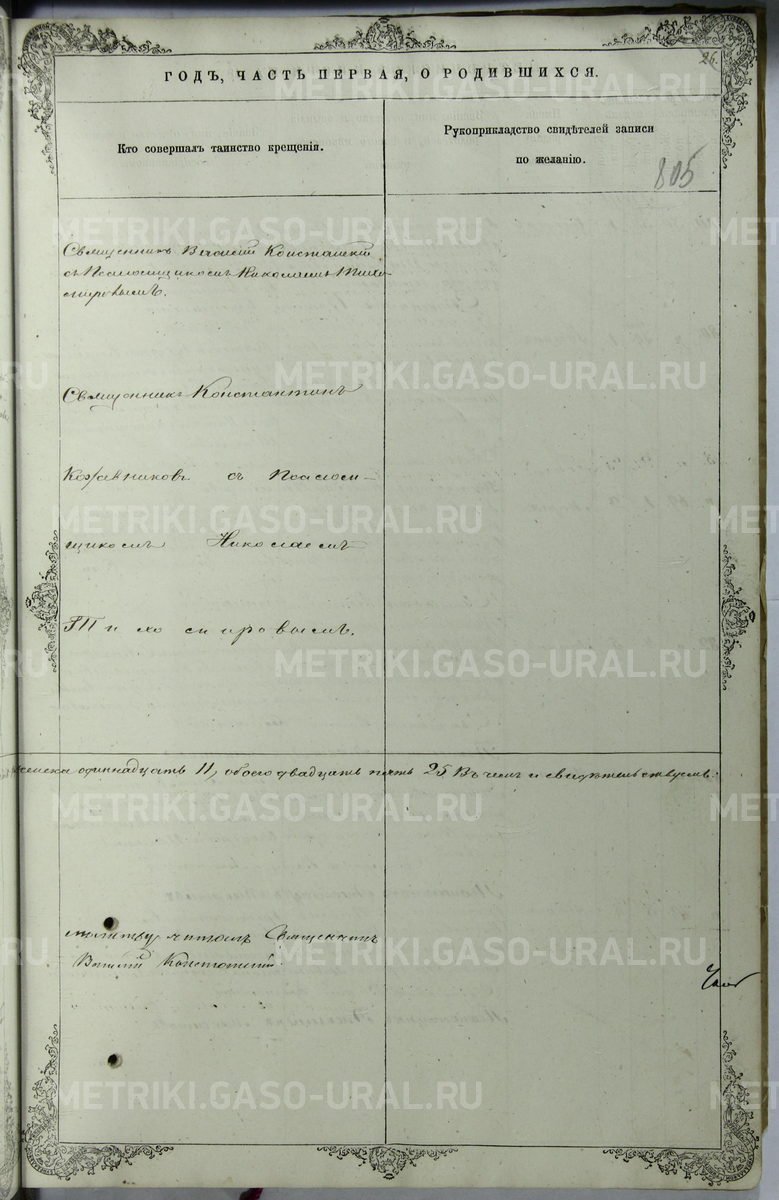 26.
ГОДЪ, ЧАСТЬ ПЕРВАЯ, О РОДИВШИХСЯ.
Кто совершалъ таинство крещенія.
Рукоприкладство свидѣтелей записи
по желанію.
805
METRIKI.GASO-URAL.RU
Священникъ Василій
съ Псаломщикомъ Николаемъ Тихо-
мировымъ.
METRIKI.GASO-URAL.RU
Священникъ Константинъ
Кожевниковъ съ Псалом-
METRIKI.GASO-URAL.RU
щикомъ Николаемъ
Тихомировымъ.
METRIKI.GASO-URAL.RU
женска одиннадцать 11, обоего двадцать пять 25 Въ чемъ и свидѣтельствуемъ:
METRIKI.GASO-URAL.RU
молитву читалъ Священникъ
Василій
METRIKI.GASO-URAL.RU
METRIKI.GASO-URAL.RU